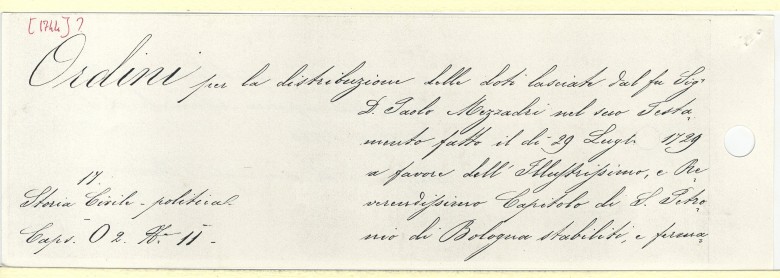 [1744]?
Ordini per la distribuzione delle doti lasciate dal fu Sigr
D. Paolo Mezzadri nel suo Testa,
mento fatto il di 29 Lugl. 1729
a favore dell'Illustrissimo, e Re,
verendissimo Capitolo di S. Petro,
nio di Bologna stabiliti, e ferma,
17.
Storia Civile - politica.
Caps. O 2. No. 11 -